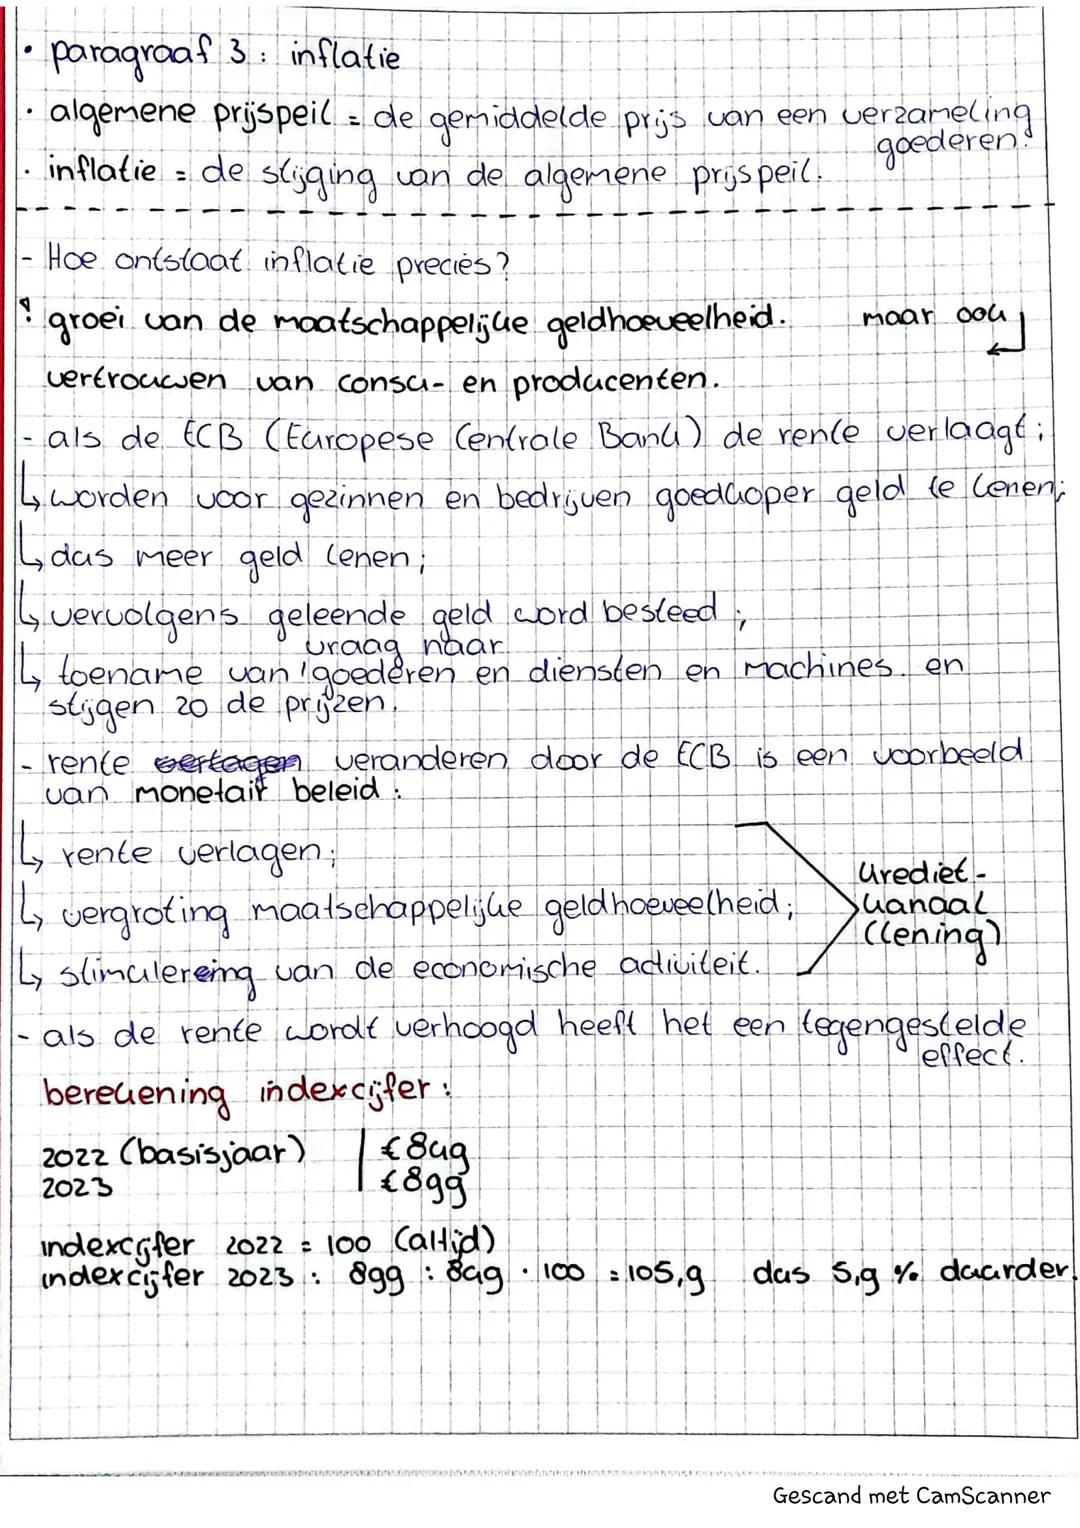 • paragraaf 3 : inflatie
• algemene prijspeil = de gemiddelde prijs van een verzameling
goederen.
• inflatie = de stijging van de algemene prijspeil.
- Hoe ontstaat inflatie precies?
! groei van de maatschappelijke geldhoeveelheid. maar ook
vertrouwen van consu- en producenten.
- als de ECB (Europese Centrale Bank) de rente verlaagt;
↳ worden voor gezinnen en bedrijven goedkoper geld te lenen;
↳ dus meer geld lenen;
↳ vervolgens geleende geld word besteed;
vraag naar
↳ toename van goederen en diensten en machines. en
stijgen zo de prijzen.
- rente verlagen veranderen door de ECB is een voorbeeld
van monetair beleid :
↳ rente verlagen;
↳ vergroting maatschappelijke geldhoeveelheid;
↳ stimulereing van de economische activiteit.
krediet-
kanaal
(lening)
- als de rente wordt verhoogd heeft het een tegengestelde
effect.
berekening indexcijfer :
2022 (basisjaar) | €849
2023 | €899
indexcijfer 2022 = 100 (altijd)
indexcijfer 2023 : 899 : 849 · 100 = 105,9 dus 5,9 % duurder.
Gescand met CamScanner